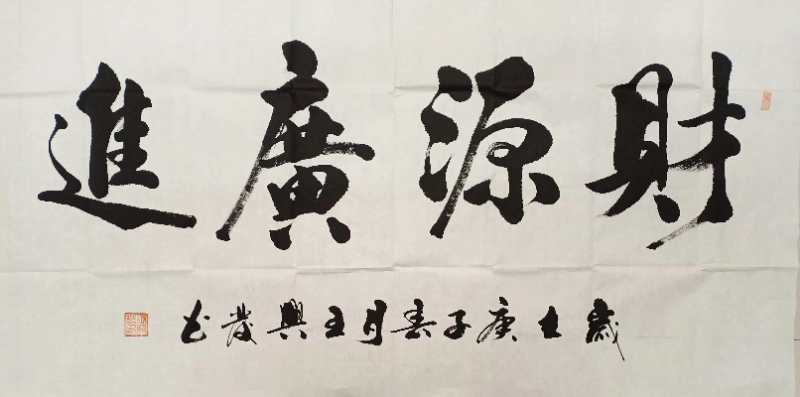 財源廣進
歲在庚子春月王興發書